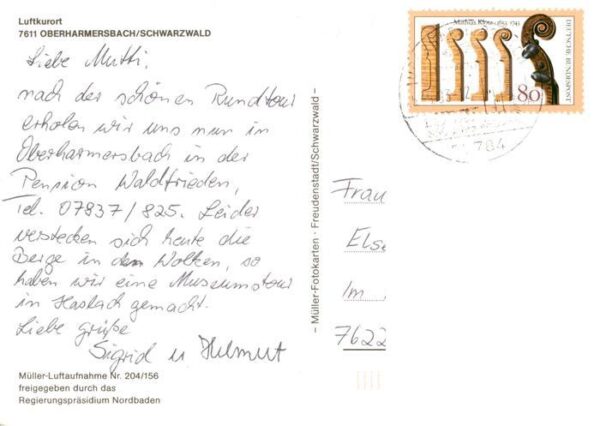 Luftkurort
7611 OBERHARMERSBACH/SCHWARZWALD
Liebe Mutti,
nach der schönen Rundtour
erholen wir uns nun in
Oberharmersbach in der
Pension Waldfrieden,
Tel. 07837/825. Leider
verstecken sich heute die
Berge in den Wolken, so
haben wir eine Museumstour
in Haslach gemacht.
Liebe grüße
Sigrid u Helmut
Müller-Luftaufnahme Nr. 204/156
freigegeben durch das
Regierungspräsidium Nordbaden
– Müller-Fotokarten · Freudenstadt/Schwarzwald –
Mathias Klotz 1653-1743
80
DEUTSCHE BUNDESPOST
784
Frau
Else
Im
7622